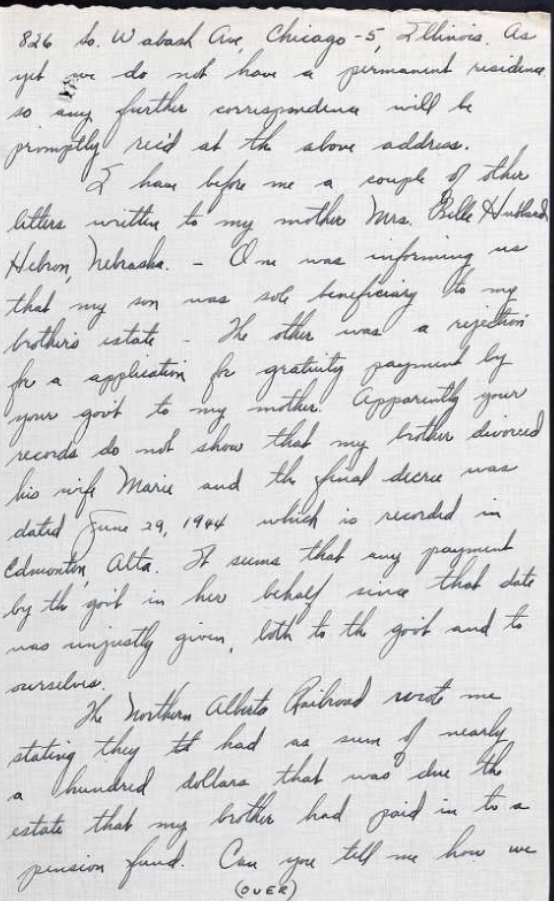 826 So. Wabash Ave, Chicago -5, Illinois. As
yet we do not have a permanent residence
so any further correspondence will be
promptly rec'd at the above address.
I have before me a couple of other
letters written to my mother Mrs. Belle Hubbard
Hebron, Nebraska. - One was informing us
that my son was sole beneficiary to my
brother's estate - The other was a rejection
for a application for gratuity payment by
your gov't to my mother. Apparently your
records do not show that my brother divorced
his wife Marie and the final decree was
dated June 29, 1944 which is recorded in
Edmonton, Alta. It seems that any payment
by the gov't in her behalf since that date
was unjustly given, both to the gov't and to
ourselves.
The Northern Alberta Railroad wrote me
stating they tt had as sum of nearly
a hundred dollars that was due the
estate that my brother had paid in to a
pension fund. Can you tell me how we
(OVER)